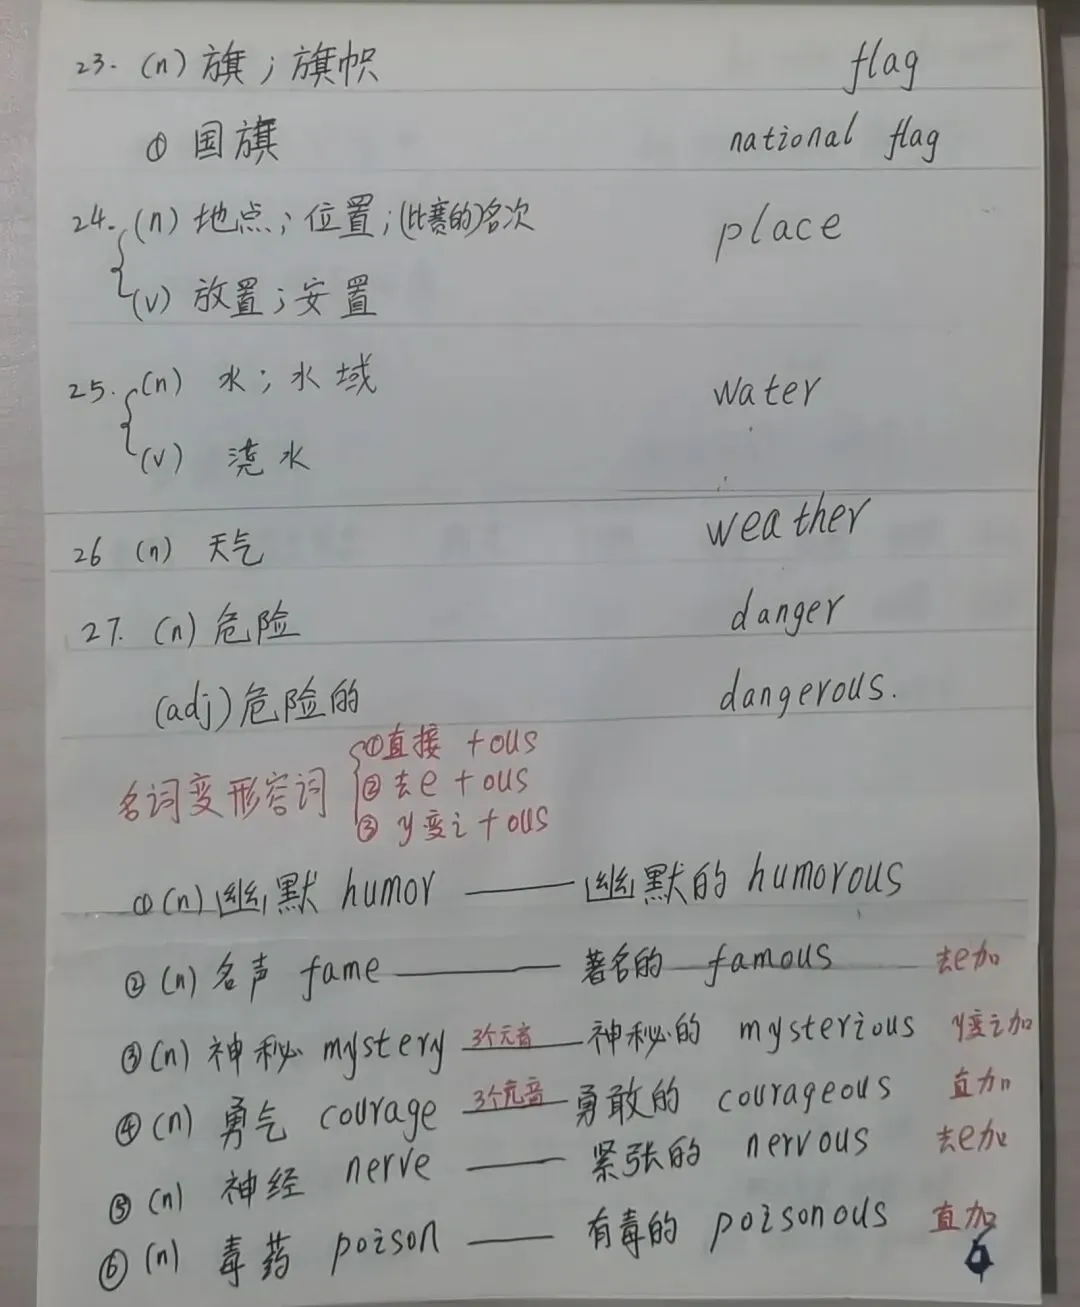 23. (n) 旗；旗帜 flag
① 国旗 national flag
24. (n) 地点；位置；(比赛的)名次 place
(v) 放置；安置
25. (n) 水；水域 water
(v) 浇水
26 (n) 天气 weather
27. (n) 危险 danger
(adj) 危险的 dangerous.
名词变形容词 ①直接 +ous
②去e +ous
③ y变i +ous
①(n) 幽默 humor —— 幽默的 humorous
②(n) 名声 fame —— 著名的 famous 去e加
③(n) 神秘 mystery 3个元音 神秘的 mysterious y变i加
④(n) 勇气 courage 3个元音 勇敢的 courageous 直加
⑤(n) 神经 nerve —— 紧张的 nervous 去e加
⑥(n) 毒药 poison —— 有毒的 poisonous 直加